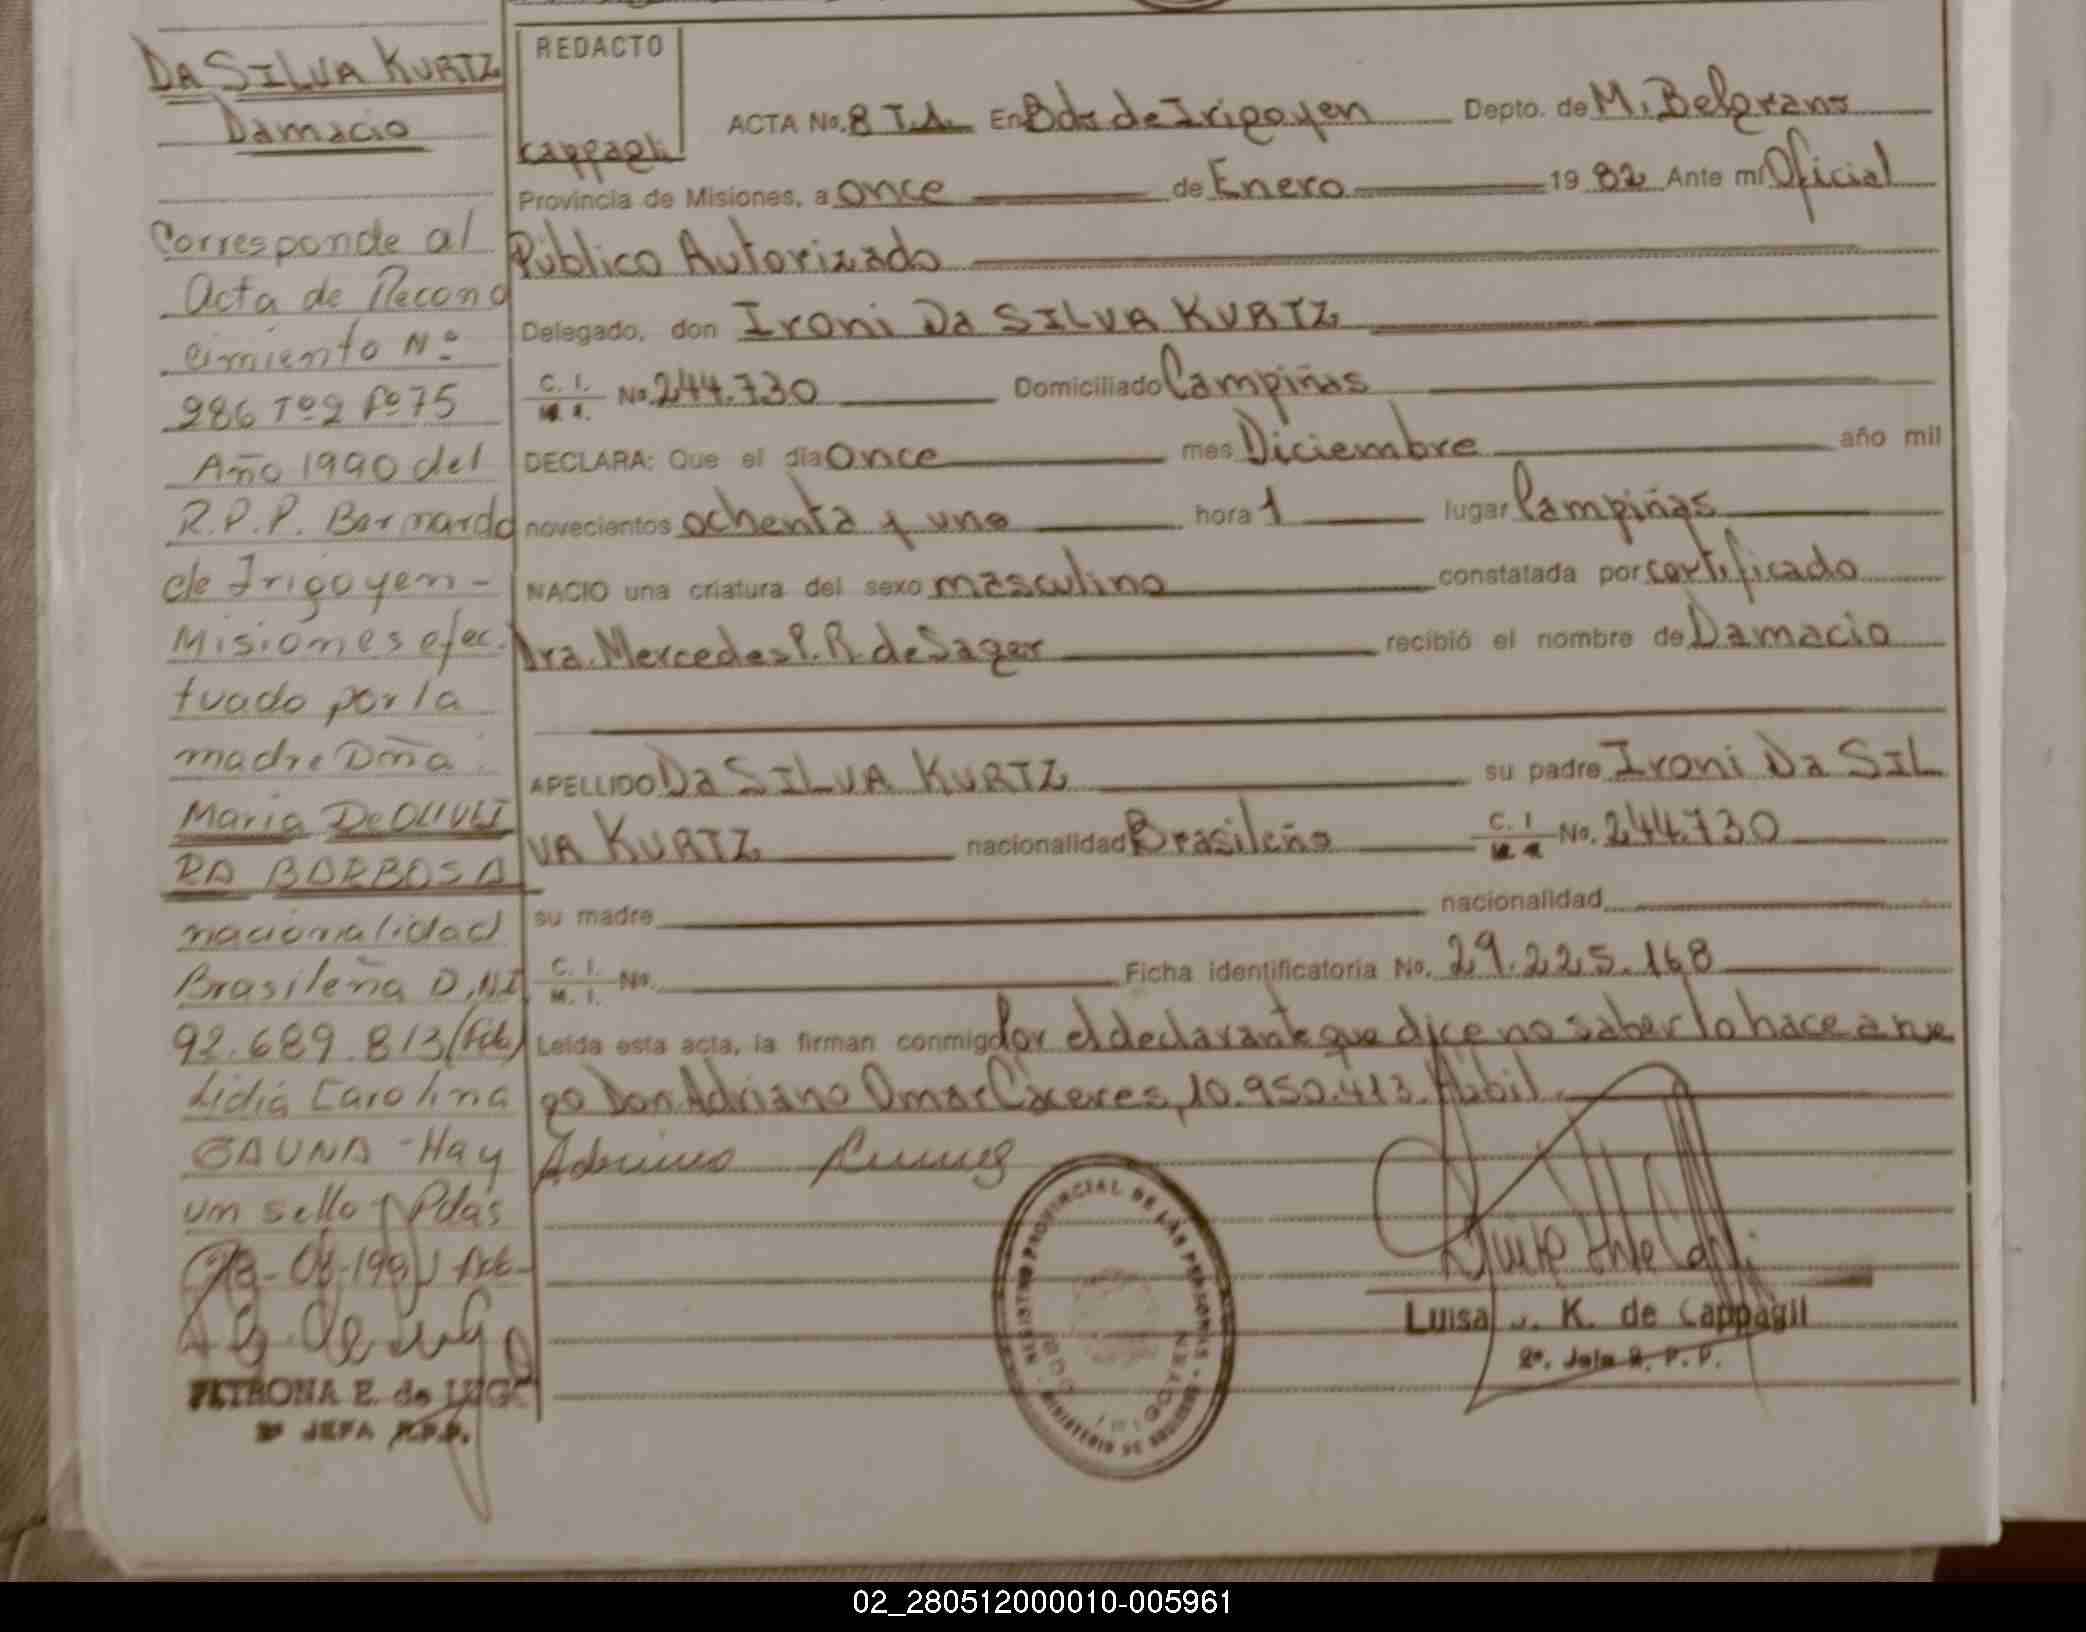 DA SILVA KURTZ
Damacio
Corresponde al
Acta de Recono
cimiento Nº
286 Tº2 Fº75
Año 1990 del
R.P.P. Bernardo
de Irigoyen -
Misiones efec.
tuado por la
madre Dña
Maria De OLIVEI
RA BARBOSA
nacionalidad
Brasileña D.NI
92.689.813 (Fdo)
Lidia Carolina
GAUNA - Hay
un sello Pdas
PETRONA E. de LUGO
2º JEFA R.P.P.
REDACTO
Cappagli
ACTA No. 8 T.1. En Bdo de Irigoyen Depto. de M. Belgrano
Provincia de Misiones, a once de Enero 19 82 Ante mi Oficial
Público Autorizado
Delegado, don Ironi Da SILVA KURTZ
C. I. No. 244.730 Domiciliado Campiñas
DECLARA: Que el día once mes Diciembre año mil
novecientos ochenta y uno hora 1 lugar Campiñas
NACIO una criatura del sexo masculino constatada por certificado
Dra. Mercedes P. R. de Sager recibió el nombre de Damacio
APELLIDO Da SILVA KURTZ su padre Ironi Da SIL
VA KURTZ nacionalidad Brasileño C. I No. 244.730
su madre nacionalidad
C. I. M. I. No. Ficha identificatoria No. 29.225.168
Leída esta acta, la firman conmigo Por el declarante que dice no saber lo hace a rue
go Don Adriano Omar Cáceres, 10.950.413. Hábil
REGISTRO PROVINCIAL DE LAS PERSONAS
Luisa K. de Cappagli
2º. Jefe R. P. P.
02_280512000010-005961